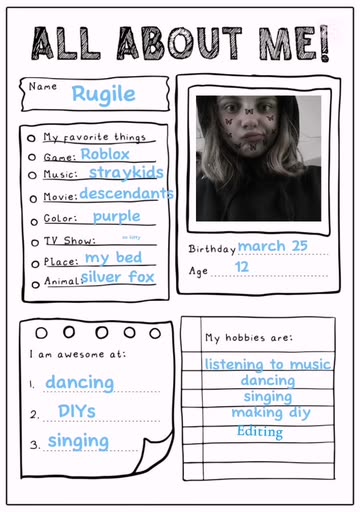 ALL ABOUT ME!
Name Rugile
My favorite things
Game: Roblox
Music: straykids
Movie: descendants
Color: purple
TV Show:
Place: my bed
Animal: silver fox
Birthday march 25
Age 12
I am awesome at:
1. dancing
2. DIYs
3. singing
My hobbies are:
listening to music
dancing
singing
making diy
Editing